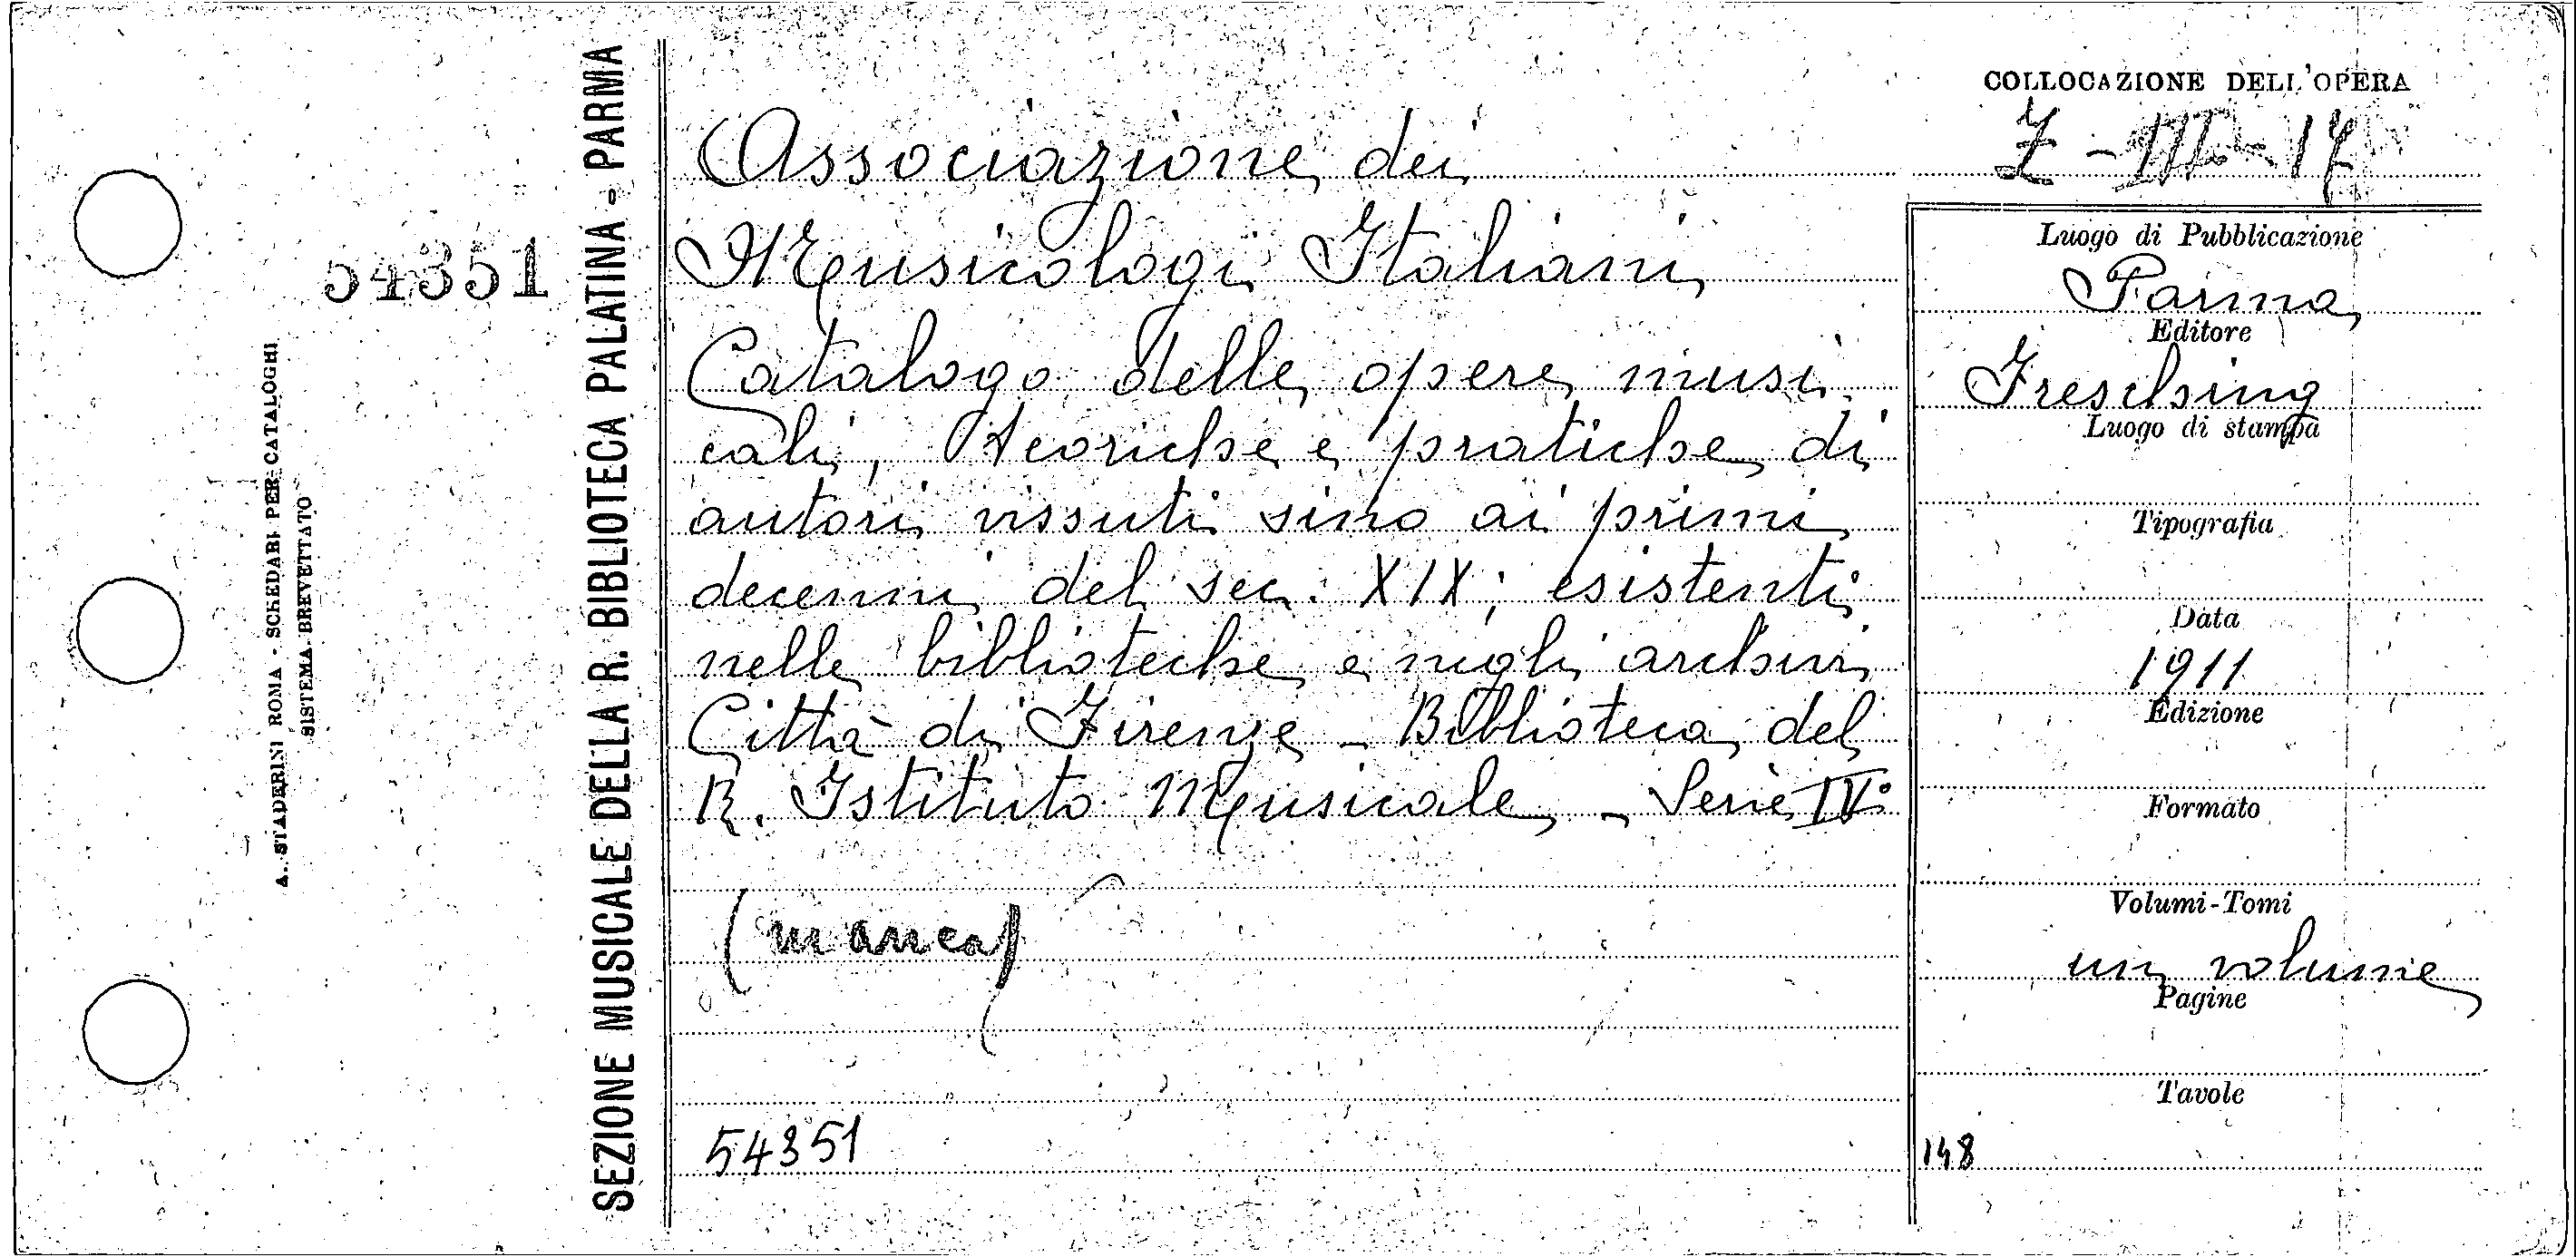 54351
A. STADERINI ROMA - SCHEDARI PER CATALOGHI
SISTEMA BREVETTATO
SEZIONE MUSICALE DELLA R. BIBLIOTECA PALATINA - PARMA
Associazione dei
Musicologi Italiani
Catalogo delle opere musi
cali, teoriche e pratiche di
autori vissuti sino ai primi
decenni del sec. XIX; esistenti
nelle biblioteche e negli archivi
Città di Firenze - Biblioteca del
R. Istituto Musicale - Serie IV°
(manca)
54351
COLLOCAZIONE DELL'OPERA
Z - III - 17
Luogo di Pubblicazione
Parma
Editore
Fresching
Luogo di stampa
Tipografia
Data
1911
Edizione
Formato
Volumi-Tomi
un volume
Pagine
Tavole
148